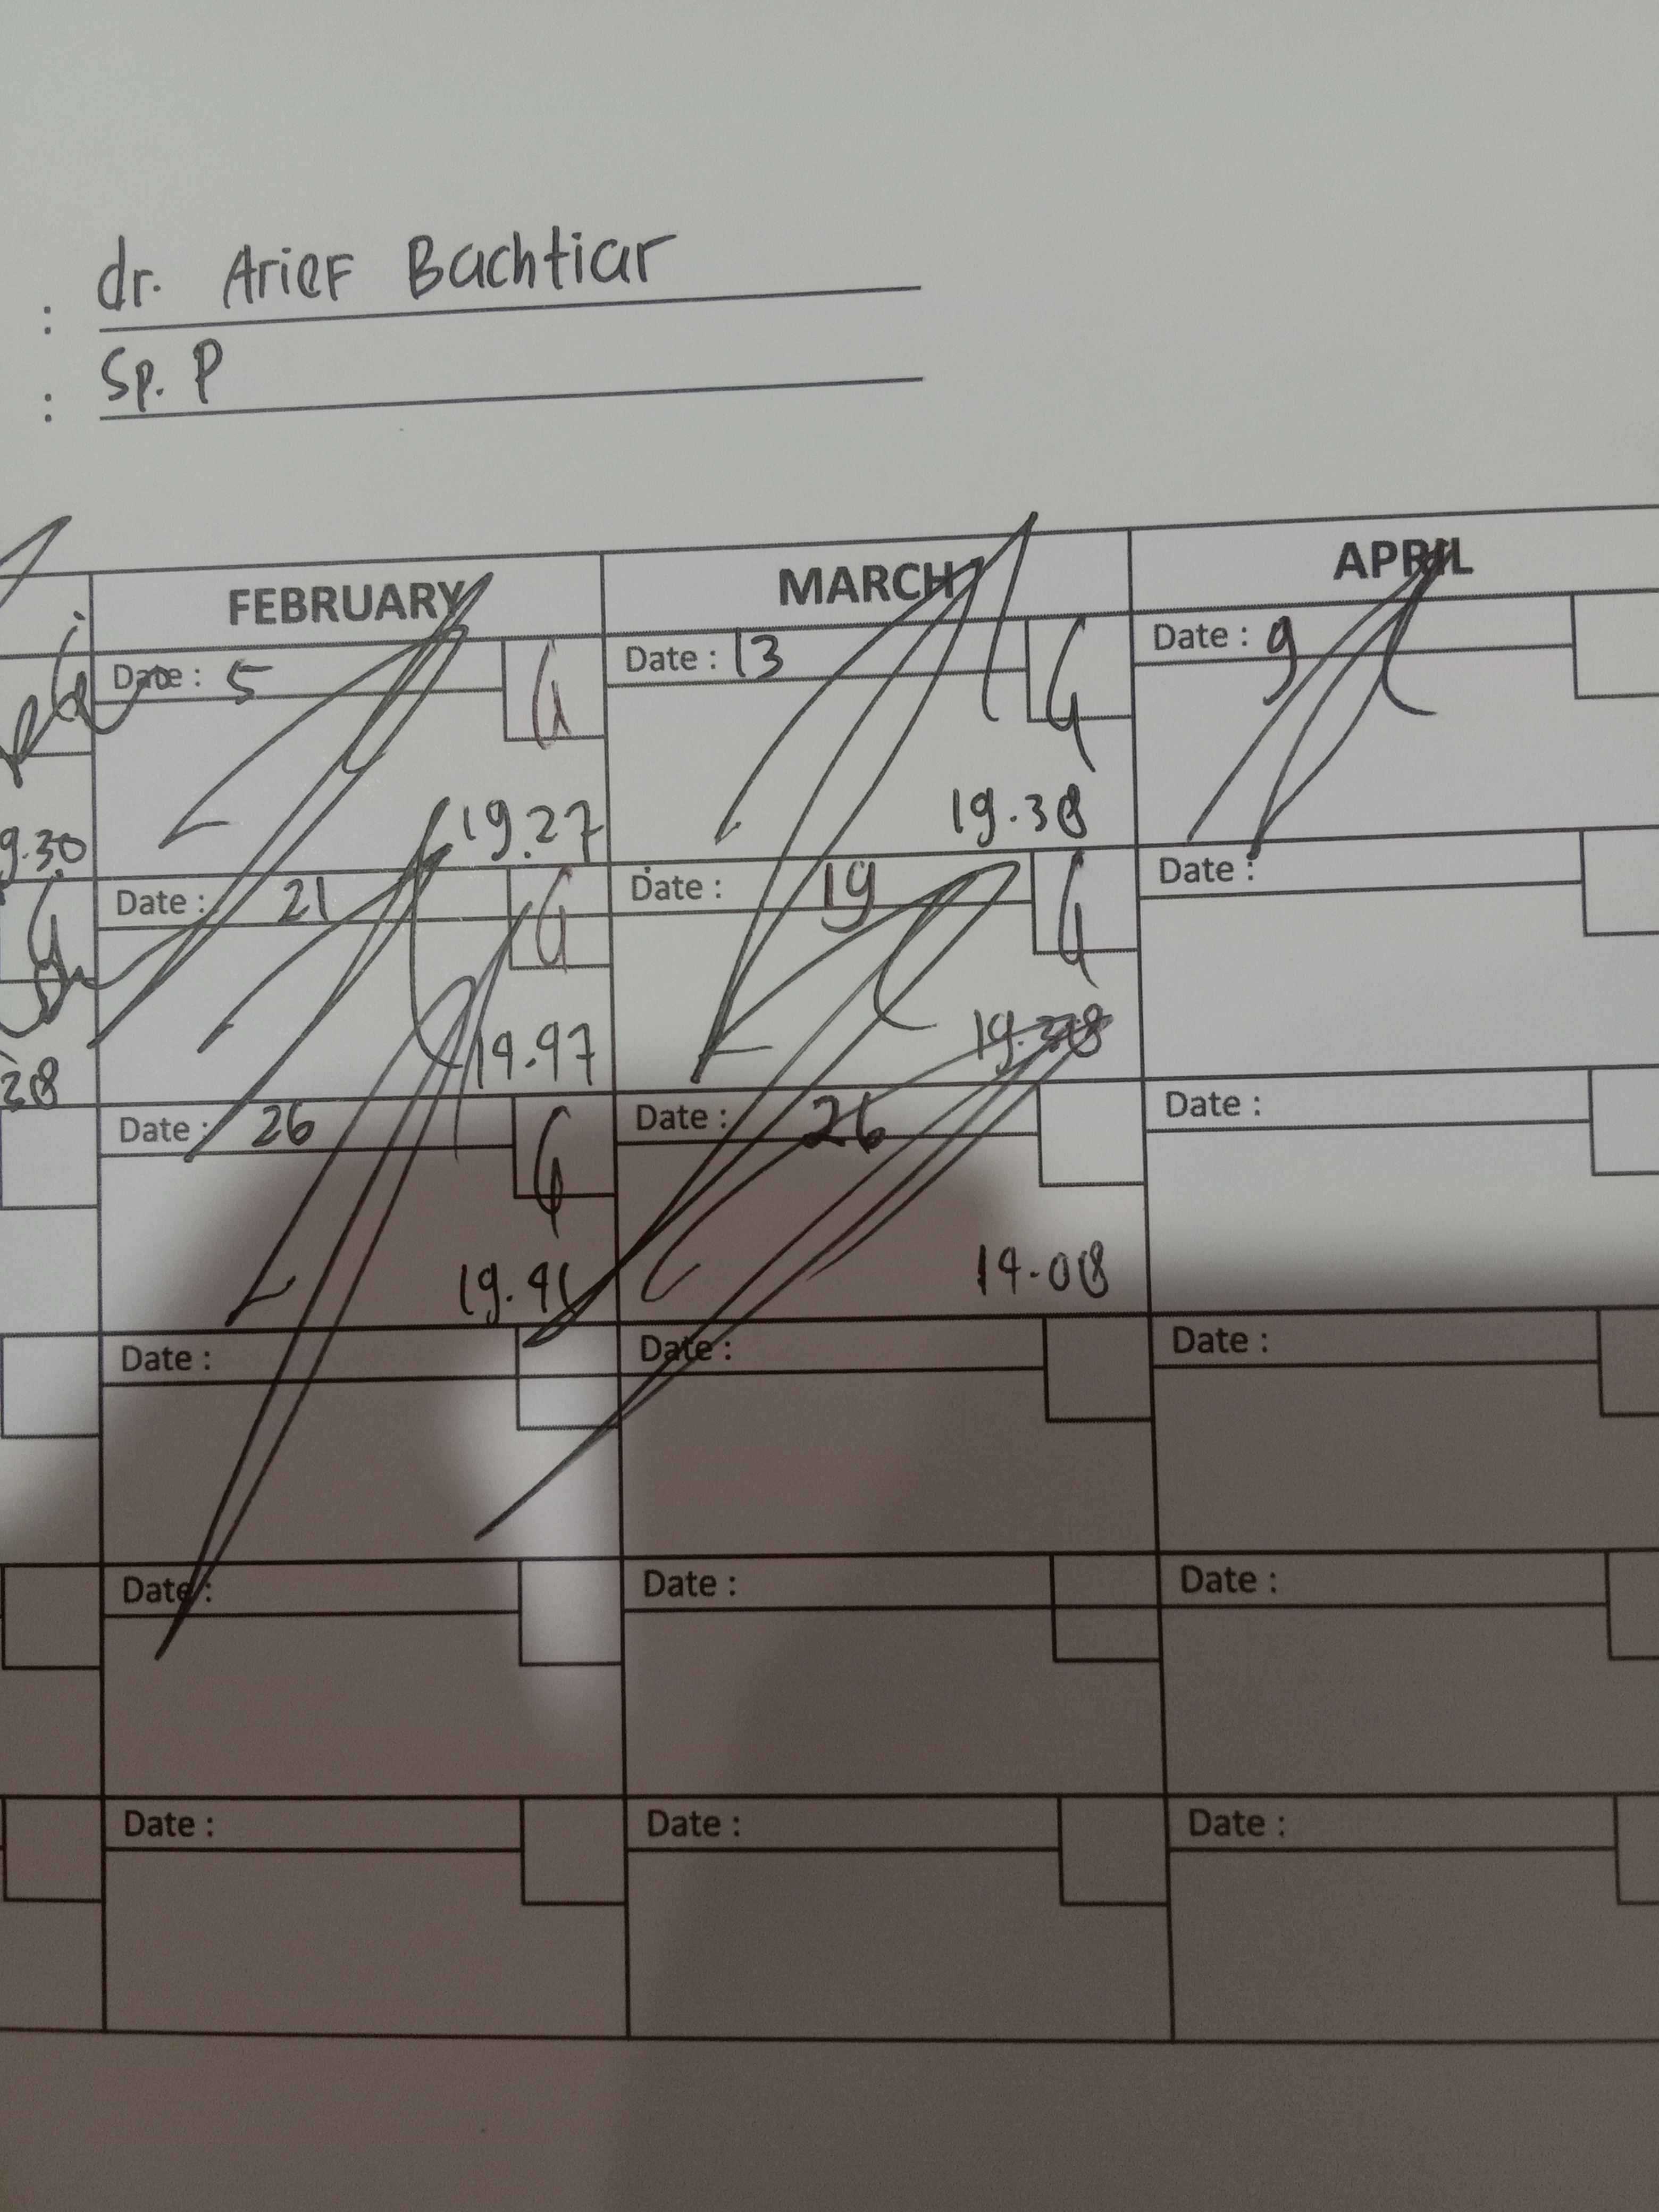 : dr. Arief Bachtiar
: Sp. P
FEBRUARY MARCH APRIL
Date : 5 Date : 13 Date : 9
9.30 19.27 19.30
Date : 21 Date : 19 Date :
28 19.47
Date : 26 Date : 26 Date :
19.41 19.08
Date : Date : Date :
Date : Date : Date :
Date : Date : Date :